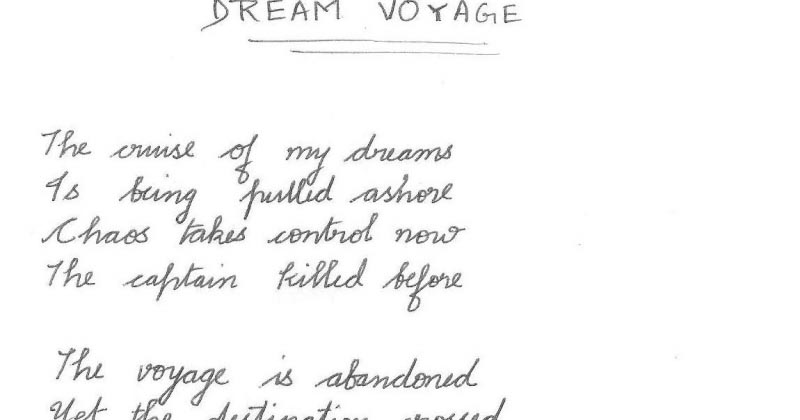 DREAM VOYAGE
The cruise of my dreams
Is being pulled ashore
Chaos takes control now
The captain killed before
The voyage is abandoned
Yet the destination crossed